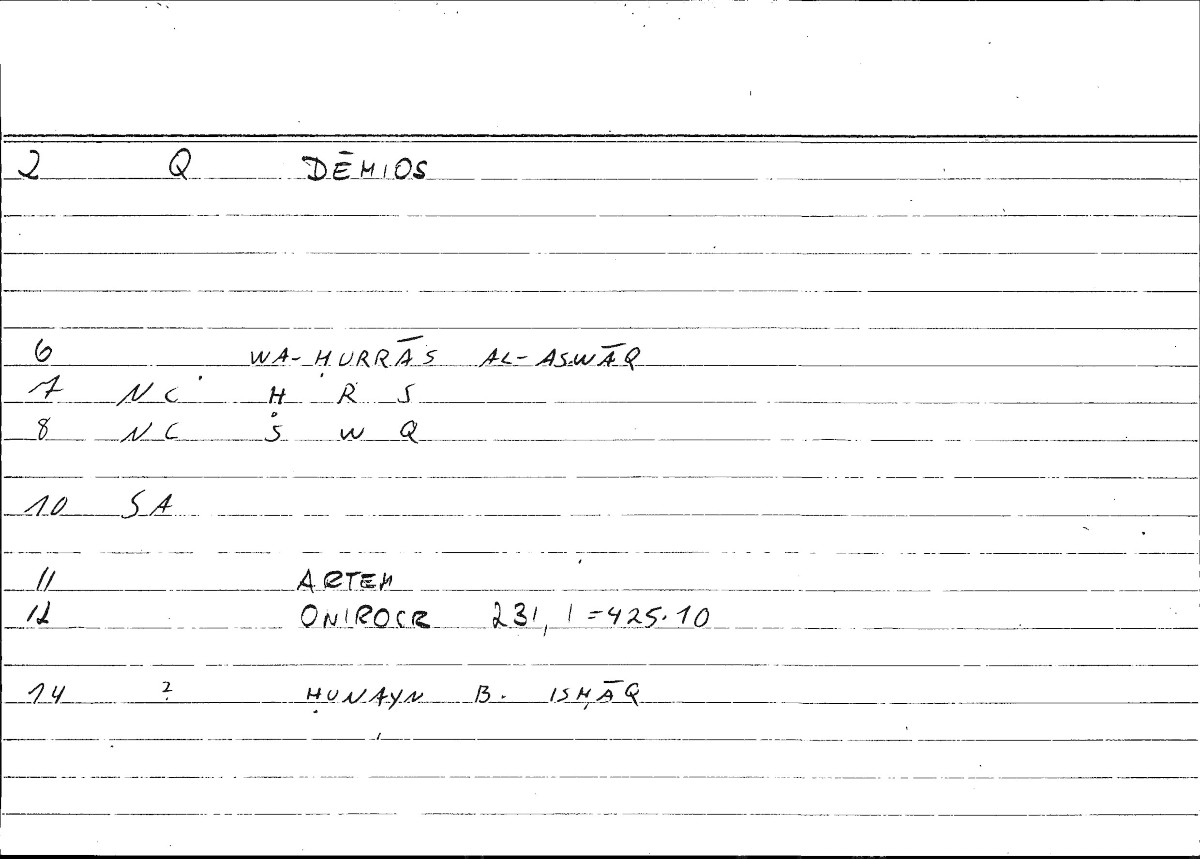 2 Q DĒMIOS
6 WA-ḤURRĀS AL-ASWĀQ
7 NC Ḥ R S
8 NC S W Q
10 SA
11 ARTEM
12 ONIROCR 231, 1 = 425.10
14 ? ḤUNAYN B. ISḤĀQ